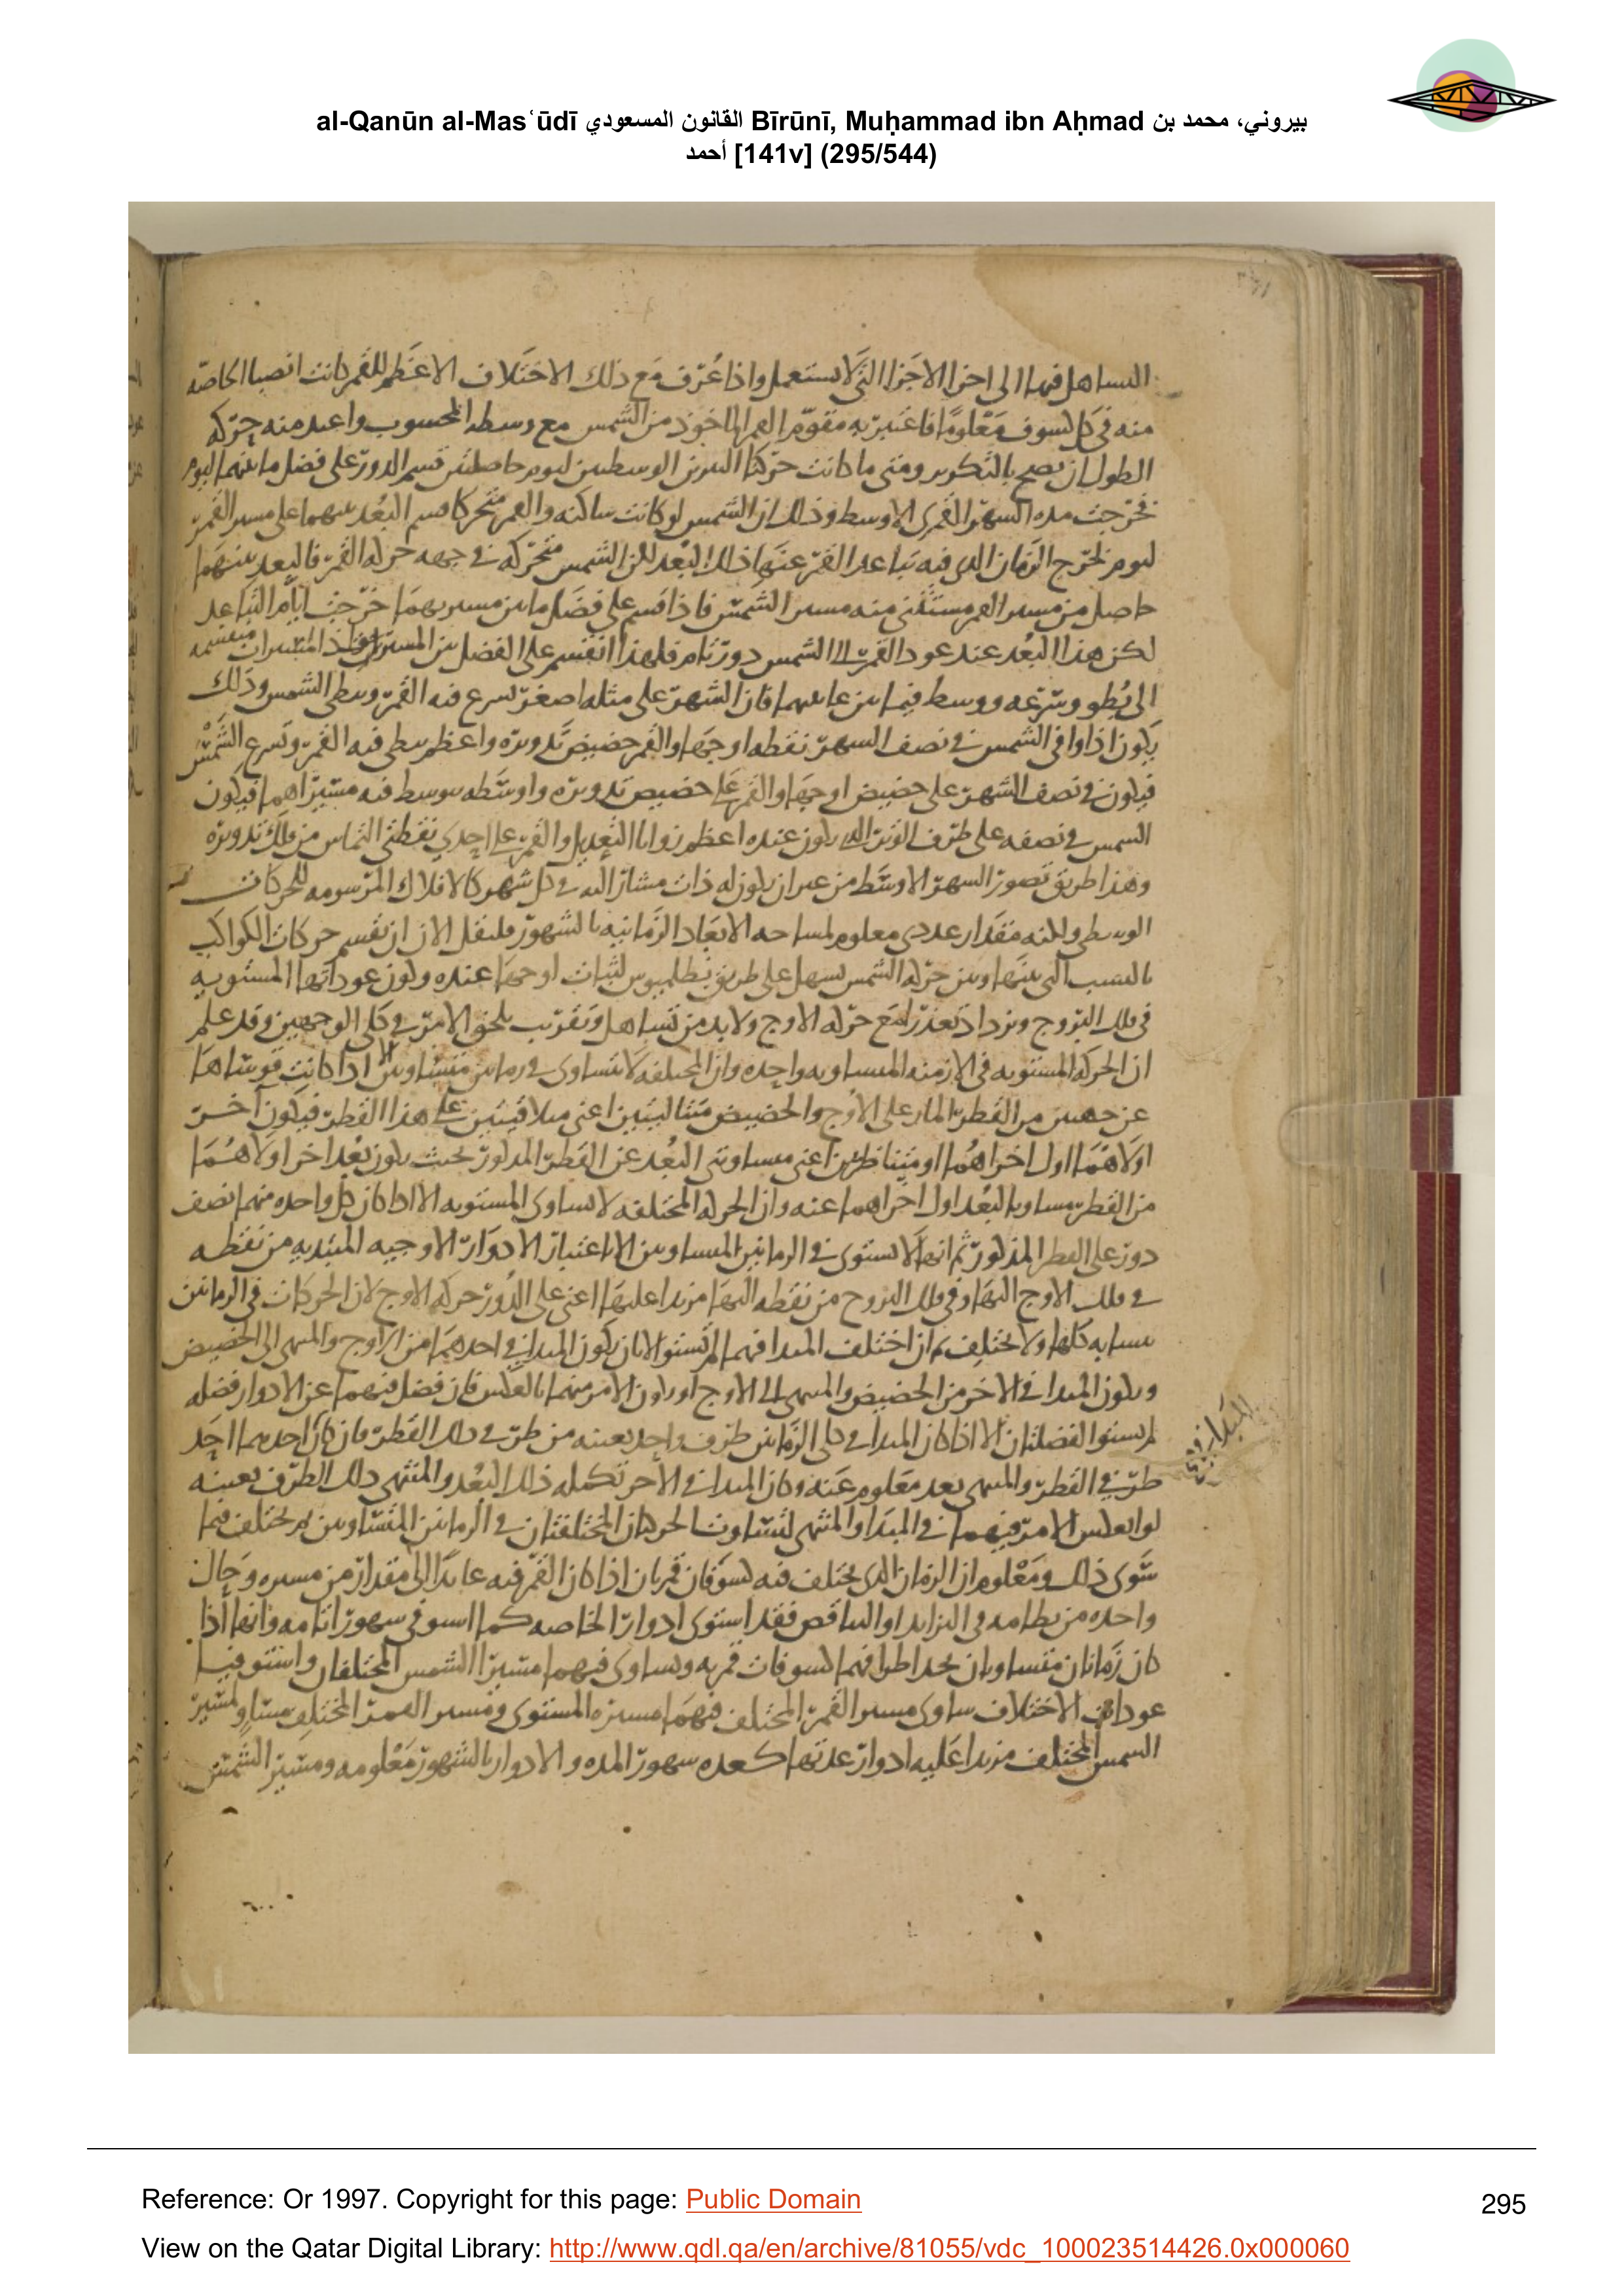 al-Qanūn al-Masʿūdī القانون المسعودي Bīrūnī, Muḥammad ibn Aḥmad بيروني، محمد بن
أحمد [141v] (295/544)
التساهل فيها الى اجزا الاجزا التى لا يستعمل واذا عرف مع ذلك الاختلاف الاعظم للقمر كانت انصبا الخاصه
منه فى كل كسوف معلومًا فاعتبر به مقوم القمر الماخوذ من الشمس مع وسطه المحسوب واعيد منه حركه
الطول ان يصح بالتكوير ومتى ما كانت حركتا النيرين الوسطيين ليوم حاصلتين قسم الدور على فضل ما بينهما ليوم
فخرجت مده الشهر القمرى الاوسط وذلك ان الشمس لو كانت ساكنه والقمر متحركا قسم البعد بينهما على مسير القمر
ليوم فخرج الزمان الذى فيه تباعد القمر عنها ذلك البعد لكن الشمس متحركه فى جهه حركه القمر فالبعد بينهما
حاصل من مسير القمر مستثنى منه مسير الشمس فاذا قسم على فضل ما بين مسيريهما خرجت ايام التباعد
لكن هذا البعد عند عود القمر الى الشمس دور تام فلهذا انقسم على الفضل بين المسيرين واذ المسيران منقسمه
الى بطو وسرعه ووسط فيما بين غايتيهما فان الشهر على مثله اصغر يسرع فيه القمر وتبطى الشمس وذلك
يكون اذا وافى الشمس فى نصف الشهر نقطه اوجها والقمر حضيض تدويره واعظم يبطى فيه القمر وتسرع الشمس
فيكون فى نصف الشهر على حضيض اوجها والقمر على حضيض تدويره واوسطه يتوسط فيه مسيراهما فيكون
الشمس فى نصفه على طرف الوتر الذى يكون عنده اعظم زوايا التعديل والقمر على احدى نقطتى التماس من فلك تدويره
وهذا طريق تصور الشهر الاوسط من غير ان يكون له ذات مشار اليه فى كل شهر كالافلاك المرسومه للحركات
الوسطى ولكنه مقدار عددى معلوم لمساحه الابعاد الزمانيه بالشهور فلنقل الان ان تقسيم حركات الكواكب
بالنسب التى بينها وبين حركه الشمس يسهل على طريق بطلميوس لثبات اوجها عنده وكون عوداتها المستويه
فى فلك البروج ويزداد تعذرًا مع حركه الاوج ولا بد من تساهل وتقريب يلحق الامر فى كلى الوجهين وقد علم
ان الحركه المستويه فى الازمنه المتساويه واحده وان المختلفه لا تتساوى فى زمانين متساويين الا اذا كانت قوساها
عن جهتين من القطر المار على الاوج والحضيض متتاليتين اعنى متلاقيتين على هذا القطر فيكون آخر
اولاهما اول اخراهما او متناظرتين اعنى متساويتى البعد عن القطر المذكور بحيث يكون بعد اخر اولاهما
من القطر مساويا لبعد اول اخراهما عنه وان الحركه المختلفه لا تساوى المستويه الا اذا كان كل واحده منهما نصف
دور على القطر المذكور ثم انها لا تستوى فى الزمانين المتساويين الا باعتبار الادوار الاوجيه المبتديه من نقطه
فى فلك الاوج اليها وفى فلك البروج من نقطه اليها مزيدا عليها اعنى على الدور حركه الاوج لان الحركات فى الزمانين
متشابه كلها ولا يختلف ثم ان اختلف المبدا فيهما لم تستو الا بان يكون المبدا فى احدهما من الاوج والمنتهى الى الحضيض
ويكون المبدا فى الاخر من الحضيض والمنتهى الى الاوج او يكون الامر منهما بالعكس فان فضل فيهما عن الادوار فضله
لم يستو الفضلتان الا اذا كان المبدا فى كلى الزمانين طرف واحد بعينه من طرفى ذلك القطر فان كان احديهما احد
طرفى القطر والمنتهى بعد معلوم عنه وكان المبدا فى الاخر تكمله ذلك البعد والمنتهى ذلك الطرف بعينه
لو انعكس الامر فيهما فى المبدا والمنتهى لتساوت الحركتان المختلفتان فى الزمانين المتساويين لم يختلف فيما
سوى ذلك ومعلوم ان الزمان الذى يختلف فيه كسوفان قمريان اذا كان القمر فيه عايدًا الى مقدار من مسيره وحال
واحده من نظامه فى التزايد او التناقص فقد استوى ادوار الخاصه كما استوفى شهورا تامه وانها اذا
كان زمانان متساويان يحد اطرافهما كسوفات قمريه وتساوى فيهما مسيرا الشمس المختلفان واستوفيا
عودات الاختلاف ساوى مسير القمر المختلف فيهما مسيره المستوى ومسير القمر المختلف مساو لمسير
الشمس المختلف مزيدا عليه ادوار عدتها كعده شهور المده والادوار بالشهور معلومه ومسير الشمس
Reference: Or 1997. Copyright for this page: Public Domain
295
View on the Qatar Digital Library: http://www.qdl.qa/en/archive/81055/vdc_100023514426.0x000060